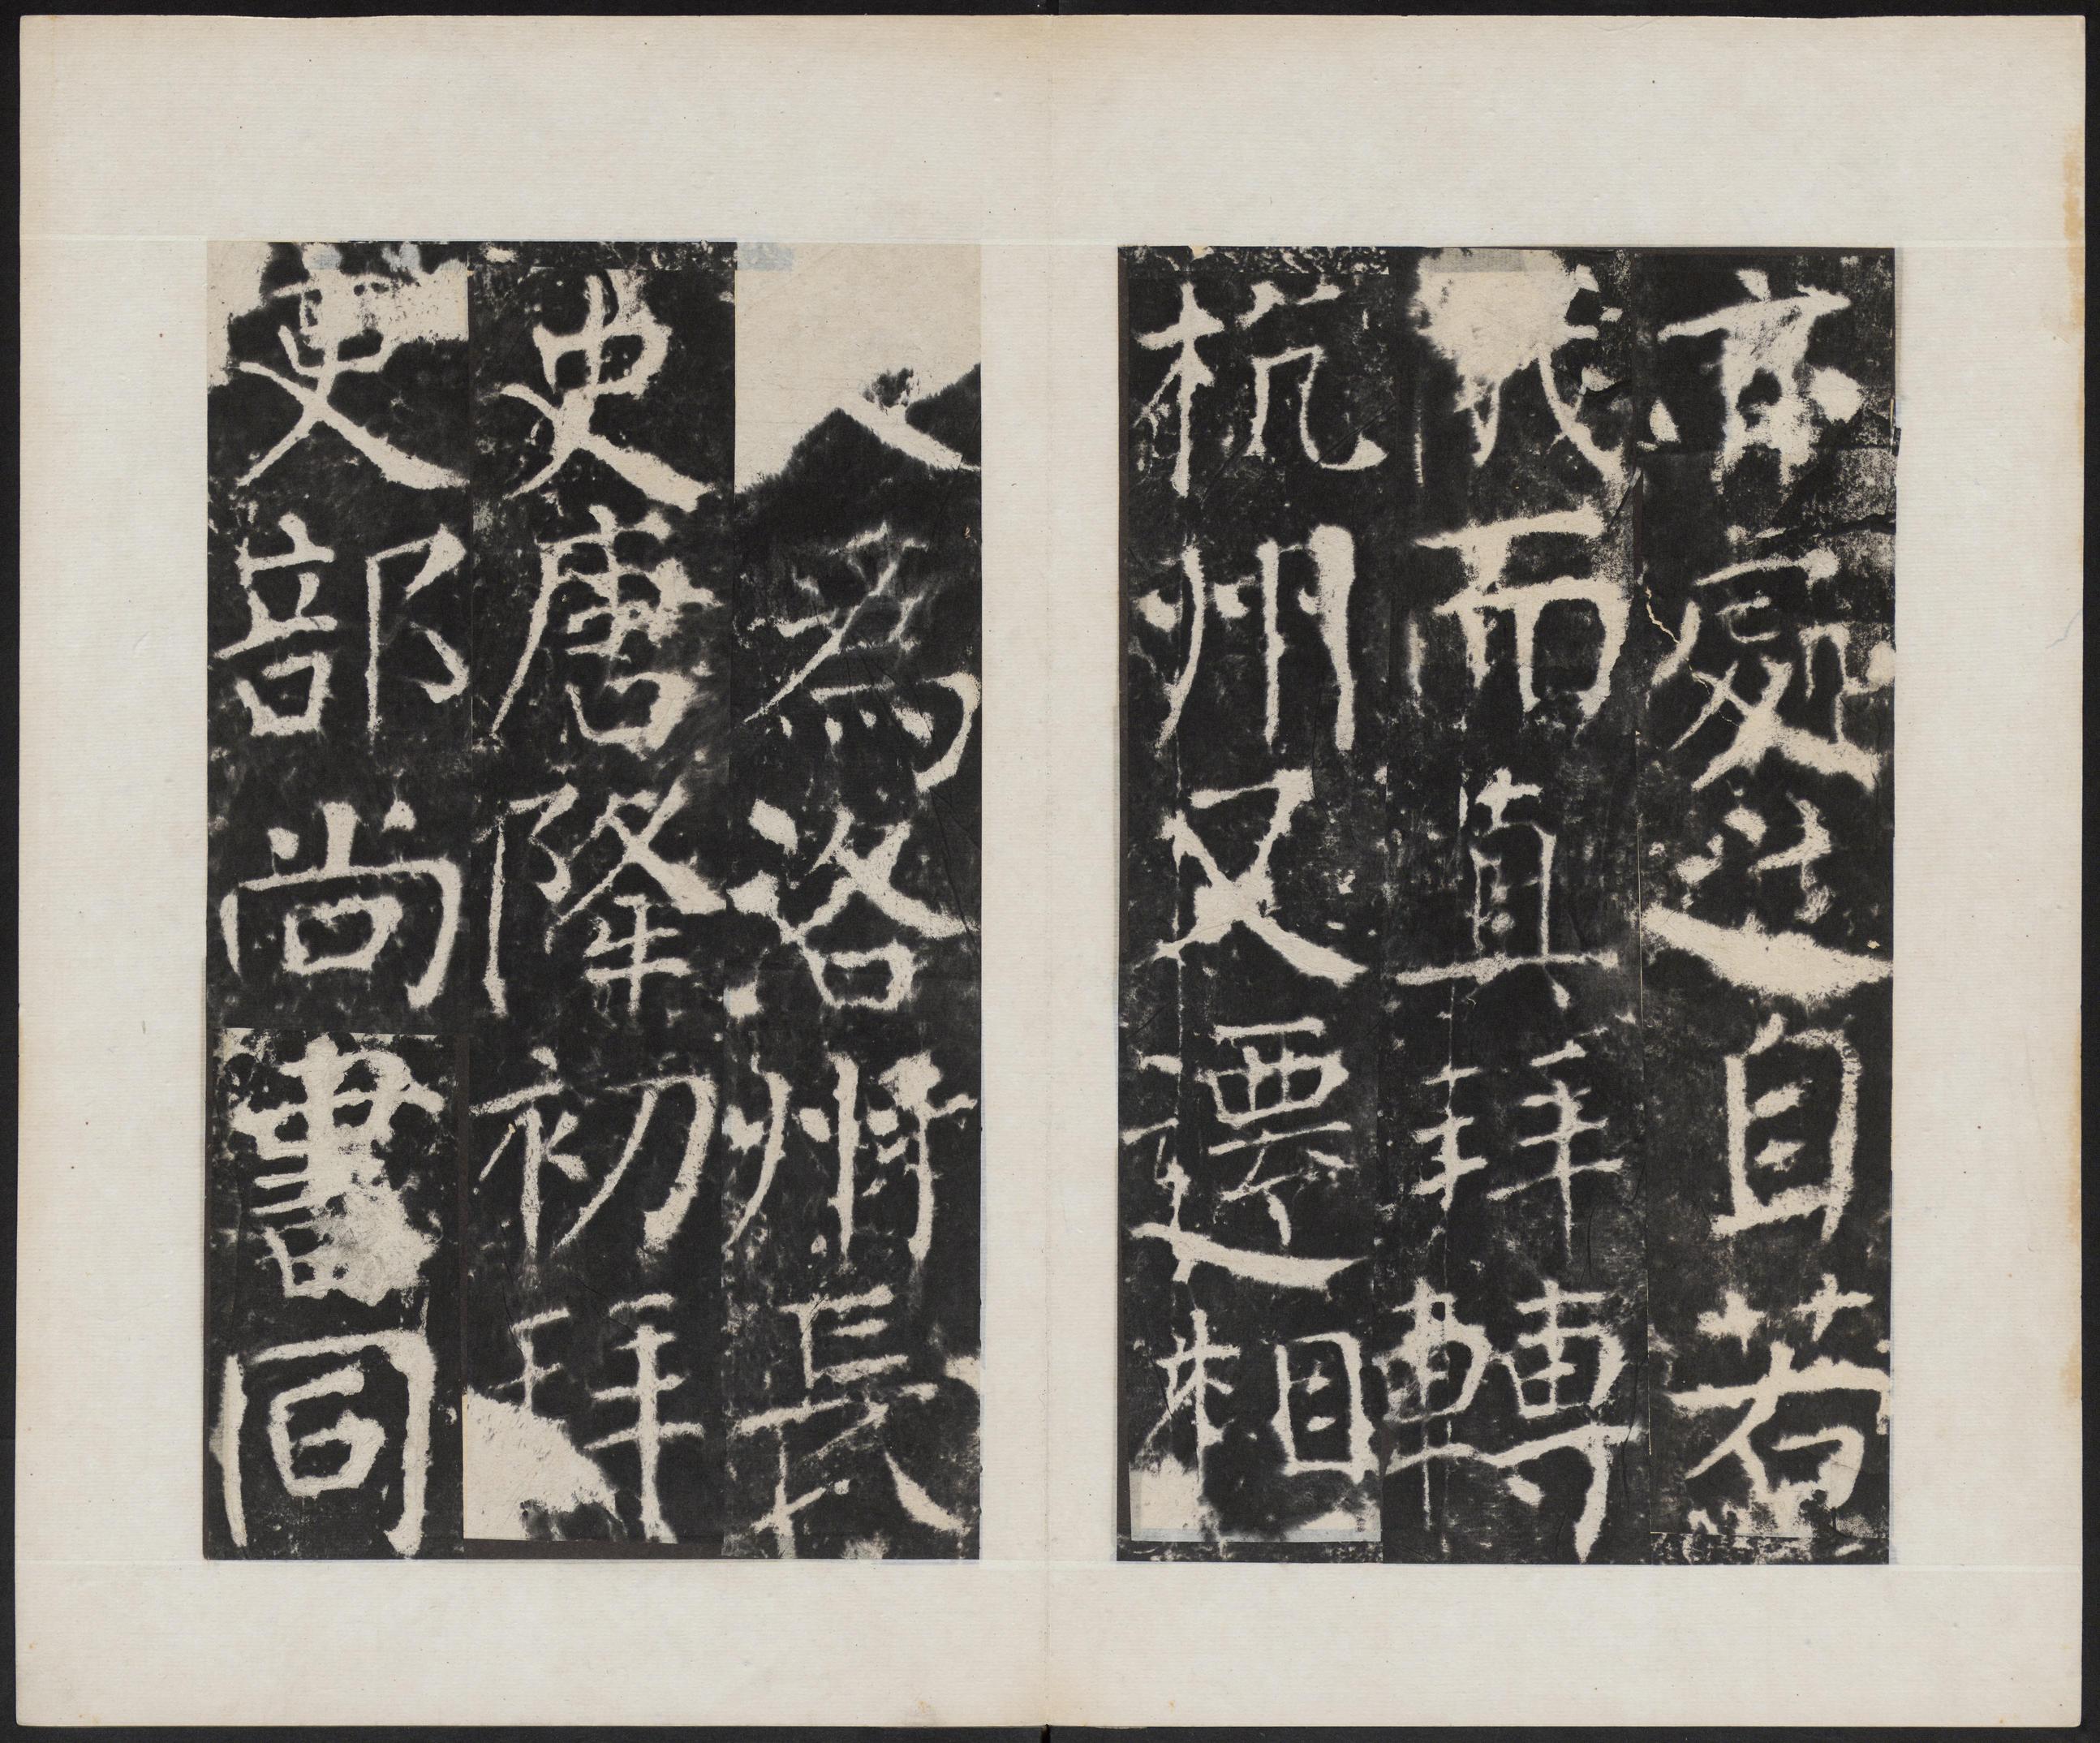 亦處之自若
俄而真拜轉
杭州又遷相
入為洛州長
史唐隆初拜
吏部尚書同